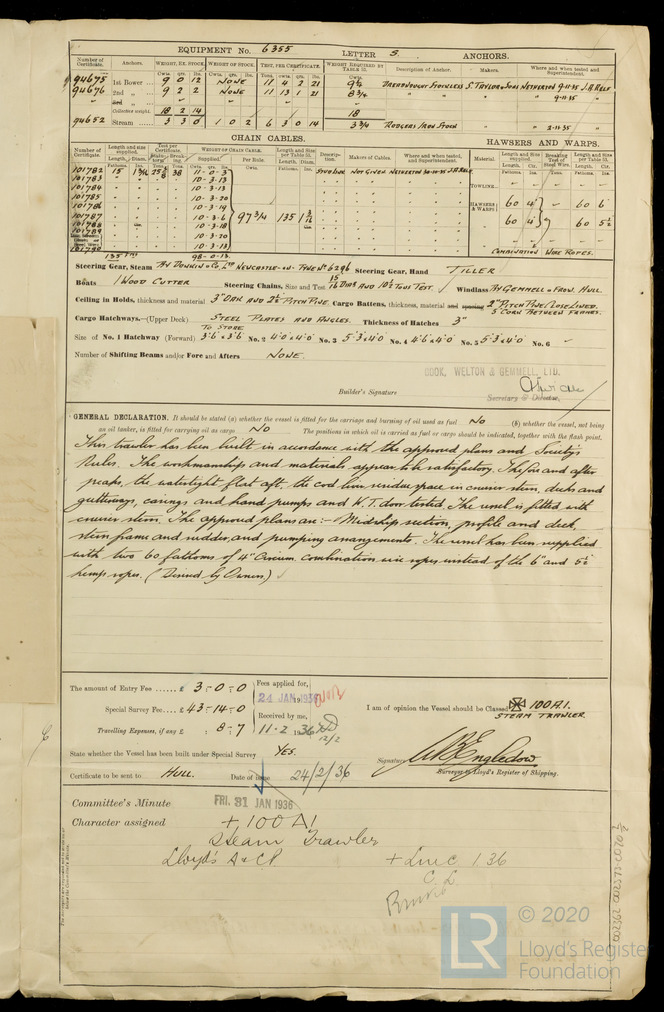 EQUIPMENT No. 6355 LETTER S. ANCHORS.
Number of Certificate. Anchors. WEIGHT, EX. STOCK. WEIGHT OF STOCK. TEST, PER CERTIFICATE. WEIGHT REQUIRED BY TABLE 53. Description of Anchor. Makers. Where and when tested and Superintendent.
94675 1st Bower 9 0 12 NONE 11 4 2 21 9¼ DREADNOUGHT STOCKLESS S. TAYLOR & SONS NETHERTON 9-11-35 J.A. RELF
94676 2nd " 9 2 2 NONE 11 13 1 21 8¾ " " " " 9-11-35 "
3rd "
Collective weight. 18 2 14 18
94652 Stream 3 3 0 1 0 2 6 3 0 14 3¾ RODGERS IRON STOCK " " 2-11-35 "
CHAIN CABLES. HAWSERS AND WARPS.
Number of Certificate. Length and size supplied. Test per Certificate. WEIGHT OF CHAIN CABLE. Length and Size per Table 53. Description. Makers of Cables. Where and when tested, and Superintendent. Material. Length and size supplied. Breaking Test of Steel Wire. Length and size per Table 53.
Length. Diam. Supplied. Per Rule. Length. Diam. Fathoms. Cir.
101782 15 1 3/16 25 3/8 38 11-0-3 STUD LINK NOT GIVEN NETHERTON 30-10-35 J.A. RELF
101783 " " " " 10-3-13
101784 " " " " 10-3-13 TOWLINE
101785 " " " " 10-3-20
101786 " " " " 10-3-19 HAWSERS & WARPS 60 4" 60 6"
101787 " " " " 10-3-6 97¾ 135 1 3/16
101788 " " " " 10-3-18 60 4" 60 5½
101789 " " " " 10-3-20
101790 " " " " 10-3-13 COMBINATION WIRE ROPES.
135 FMS 98-0-13
Steering Gear, Steam AY DONKIN & CO. LTD NEWCASTLE-ON-TYNE No 6296 Steering Gear, Hand TILLER
Boats 1 WOOD CUTTER Steering Chains, Size and Test 15/16 DIAS AND 10½ TONS TEST Windlass AY GEMMELL & FROW. HULL.
Ceiling in Holds, thickness and material 3" OAK AND 2½" PITCH PINE. Cargo Battens, thickness, material and spacing 2" PITCH PINE CLOSE LINED. 5" CORK BETWEEN FRAMES.
Cargo Hatchways.—(Upper Deck) STEEL PLATES AND ANGLES. Thickness of Hatches 3"
TO STORE
Size of No. 1 Hatchway (Forward) 3'6 x 3'6 No. 2 4'0 x 4'0 No. 3 5'3 x 4'0 No. 4 4'6 x 4'0 No. 5 5'3 x 4'0 No. 6
Number of Shifting Beams and/or Fore and Afters NONE.
COOK, WELTON & GEMMELL, LTD.
Builder's Signature Secretary & Director.
GENERAL DECLARATION. It should be stated (a) whether the vessel is fitted for the carriage and burning of oil used as fuel NO (b) whether the vessel, not being
an oil tanker, is fitted for carrying oil as cargo NO The positions in which oil is carried as fuel or cargo should be indicated, together with the flash point.
This trawler has been built in accordance with the approved plans and Society's
Rules. The workmanship and materials appear to be satisfactory. The fore and after
peaks, the watertight flat aft, the cod liver residue space in cruiser stern, decks and
gutterways, casings and hand pumps and W.T. door tested. The vessel is fitted with
cruiser stern. The approved plans are:- Midship section, profile and deck,
stern frame and rudder, and pumping arrangements. The vessel has been supplied
with two 60 fathoms of 4" Circum. combination wire ropes instead of the 6" and 5½
hemp ropes. (Desired by Owners)
The amount of Entry Fee £ 3-0-0 Fees applied for,
24 JAN 1936
Special Survey Fee £ 43-14-0 Received by me,
Travelling Expenses, if any £ : 8-7 11-2 1936 12/2
I am of opinion the Vessel should be Classed 100 A1.
STEAM TRAWLER
State whether the Vessel has been built under Special Survey YES. Signature W. B. Engledow
Surveyor to Lloyd's Register of Shipping.
Certificate to be sent to HULL. Date of issue 24/2/36
Committee's Minute FRI. 31 JAN 1936
Character assigned + 100 A1
Steam Trawler
Lloyd's A & CP + LMC 1.36
C.L.
002362-002373-0070 1/2
LR © 2020
Lloyd's Register
Foundation